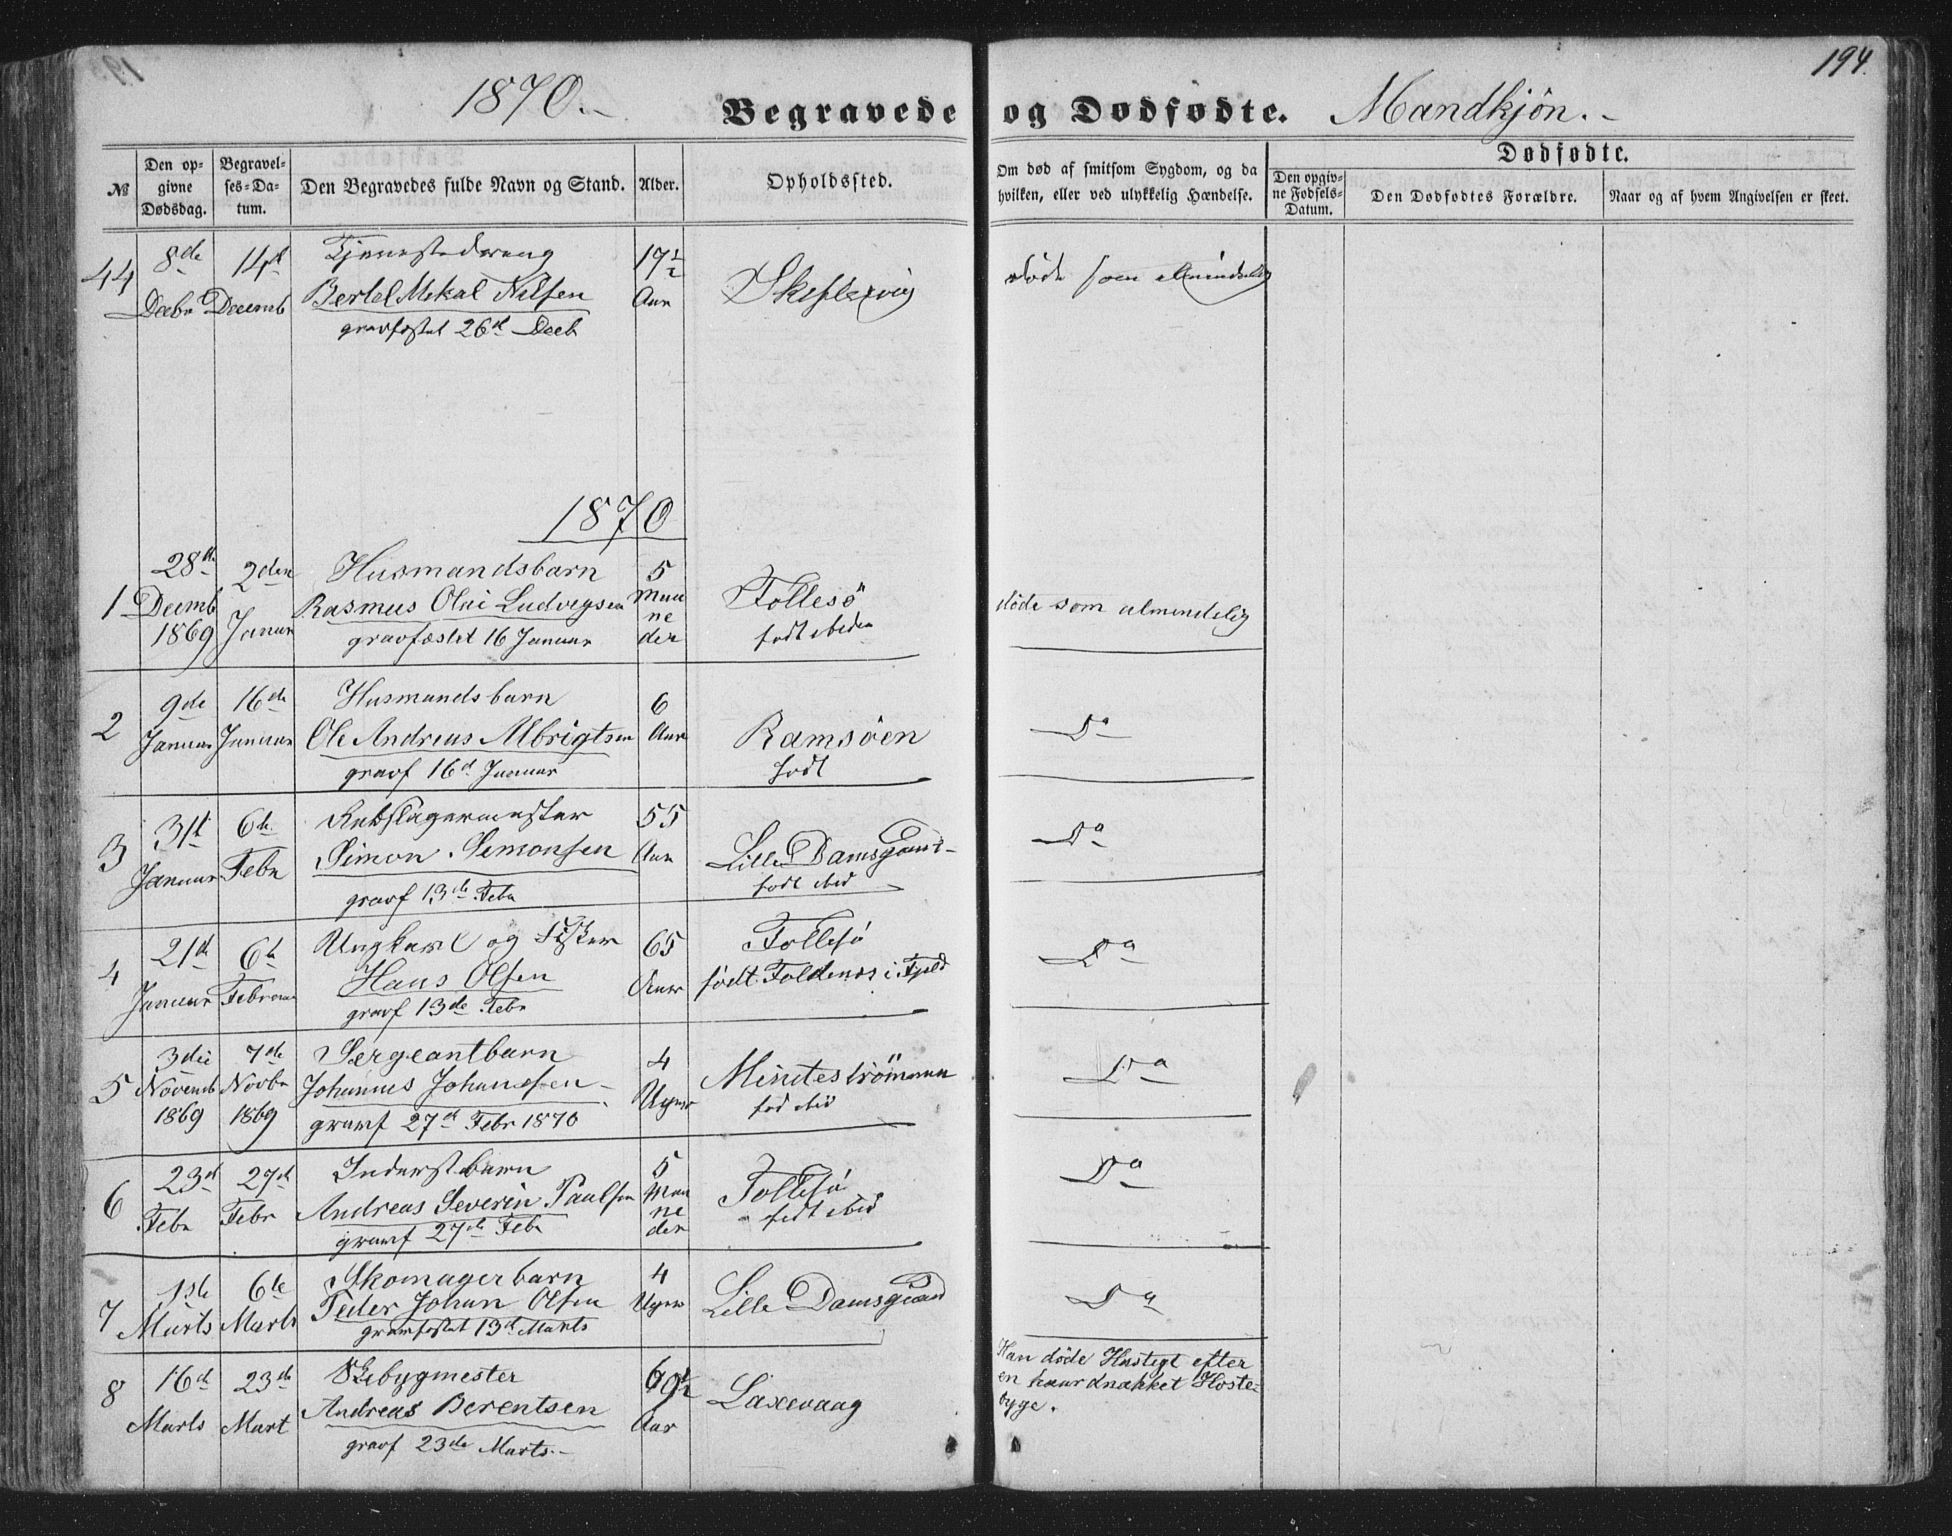 194.
1870.
Begravede og Dødfødte. Mandkjön.
№
Den opgivne Dødsdag.
Begravelses-Datum.
Den Begravedes fulde Navn og Stand.
Alder.
Opholdssted.
Om død af smitsom Sygdom, og da hvilken, eller ved ulykkelig Hændelse.
Dødfødte.
Den opgivne Fødsels-Datum.
Den Dødfødtes Forældre.
Naar og af hvem Angivelsen er skeet.
44
8de Decbr
14d Decemb
Tjenestedreng
Bertel Mekal Nilsen
gravfæstet 26d Decb
17½ Aar
døde som almindelig
1870
1
28de Decmb 1869
2den Januar
Husmandsbarn
Rasmus Olai Ludvigsen
gravfæstet 16 Januar
5 Maaneder
Follesö
født ibiden
døde som almendelig
2
9de Januar
16de Januar
Husmandsbarn
Ole Andreas Albrigtsen
gravf 16d Januar
6 Aar
Ramsöen
født
Do
3
31t Januar
6te Febr
Rebslagermester
Simon Simonsen
gravf 13de Febr
55 Aar
Lille Damsgaard
født ibid
Do
4
21d Januar
6te Februar
Ungkarl og Fisker
Hans Olsen
gravf 13de Febr
65 Aar
Follesö
født Foldenes i Fjeld
Do
5
3die Novemb 1869
7de Novbr 1869
Sergeantbarn
Johannes Johannesen
gravf 27d Febr 1870
4 Uger
Mindeströmmen
fød ibid
Do
6
23d Febr
27d Febr
Inderstbarn
Andreas Severin Paulsen
gravf 27de Febr
5 Maaneder
Follesö
født ibid
Do
7
1ste Marts
6te Marts
Skomagerbarn
Peder Johan Olsen
gravfæstet 13d Marts
4 Uger
Lille Damsgaard
Do
8
16d Marts
23de Mart
Skibygmester
Andreas Berentsen
gravf 23de Marts
69½ Aar
Laxevaag
Han döde Hastigt efter
en haardnakket Hoste-
byge.